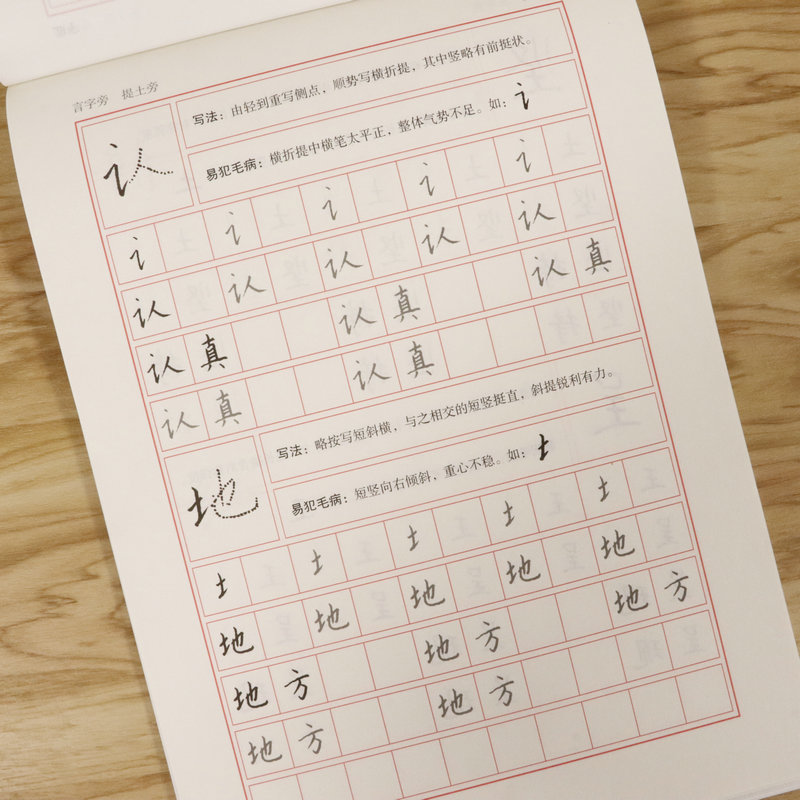 言字旁 提土旁
认
写法：由轻到重写侧点，顺势写横折提，其中竖略有前挺状。
易犯毛病：横折提中横笔太平正，整体气势不足。如：讠
讠 讠 讠 讠 讠
认 认 认 认 认
认 真 认 真 认 真
认 真 认 真
地
写法：略按写短斜横，与之相交的短竖挺直，斜提锐利有力。
易犯毛病：短竖向右倾斜，重心不稳。如：土
土 土 土 土 土
地 地 地 地 地
地 方 地 方 地 方
地 方 地 方